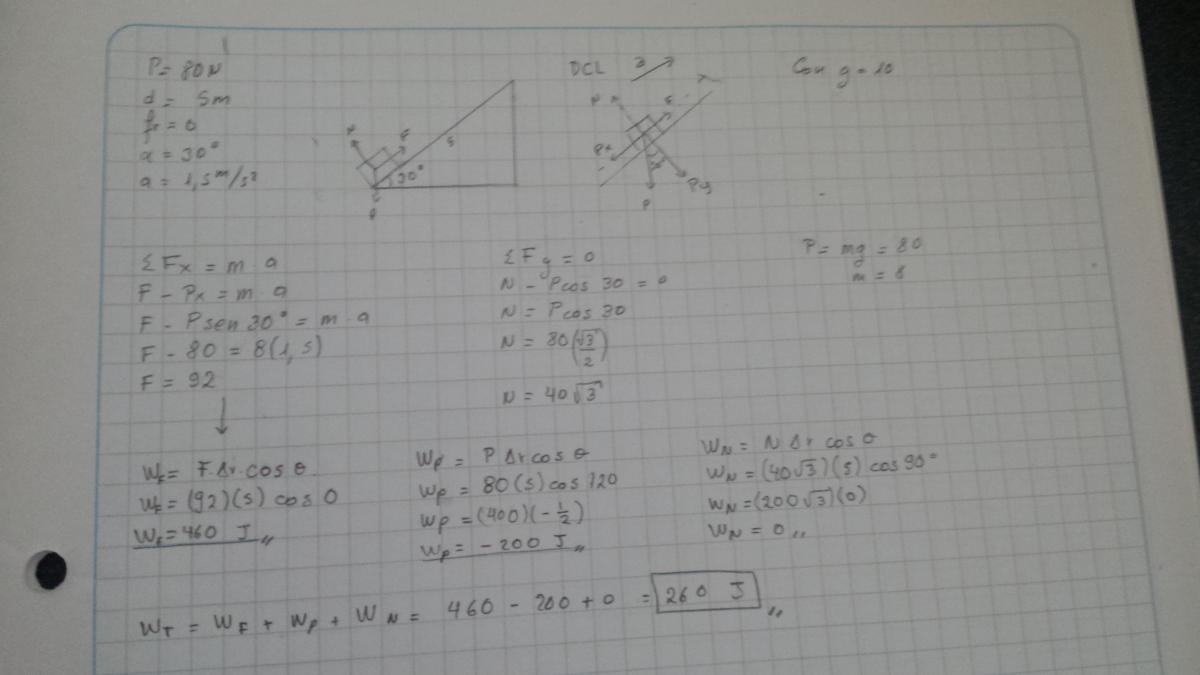 P = 80N
d = 5m
fr = 0
α = 30°
a = 1,5 m/s²
N
F
5
30°
P
DCL
a
N
F
Px
Py
P
Con g = 10
ΣFx = m · a
F - Px = m · a
F - Psen 30° = m · a
F - 80 = 8(1,5)
F = 92
ΣFy = 0
N - Pcos 30 = 0
N = Pcos 30
N = 80(√3/2)
N = 40√3
P = mg = 80
m = 8
WF = F·Δr·cos θ
WF = (92)(5) cos 0
WF = 460 J,,
Wp = P Δr cos θ
Wp = 80(5) cos 120
Wp = (400)(-1/2)
Wp = -200 J,,
WN = N Δr cos θ
WN = (40√3)(5) cos 90°
WN = (200√3)(0)
WN = 0,,
WT = WF + Wp + WN = 460 - 200 + 0 = 260 J,,